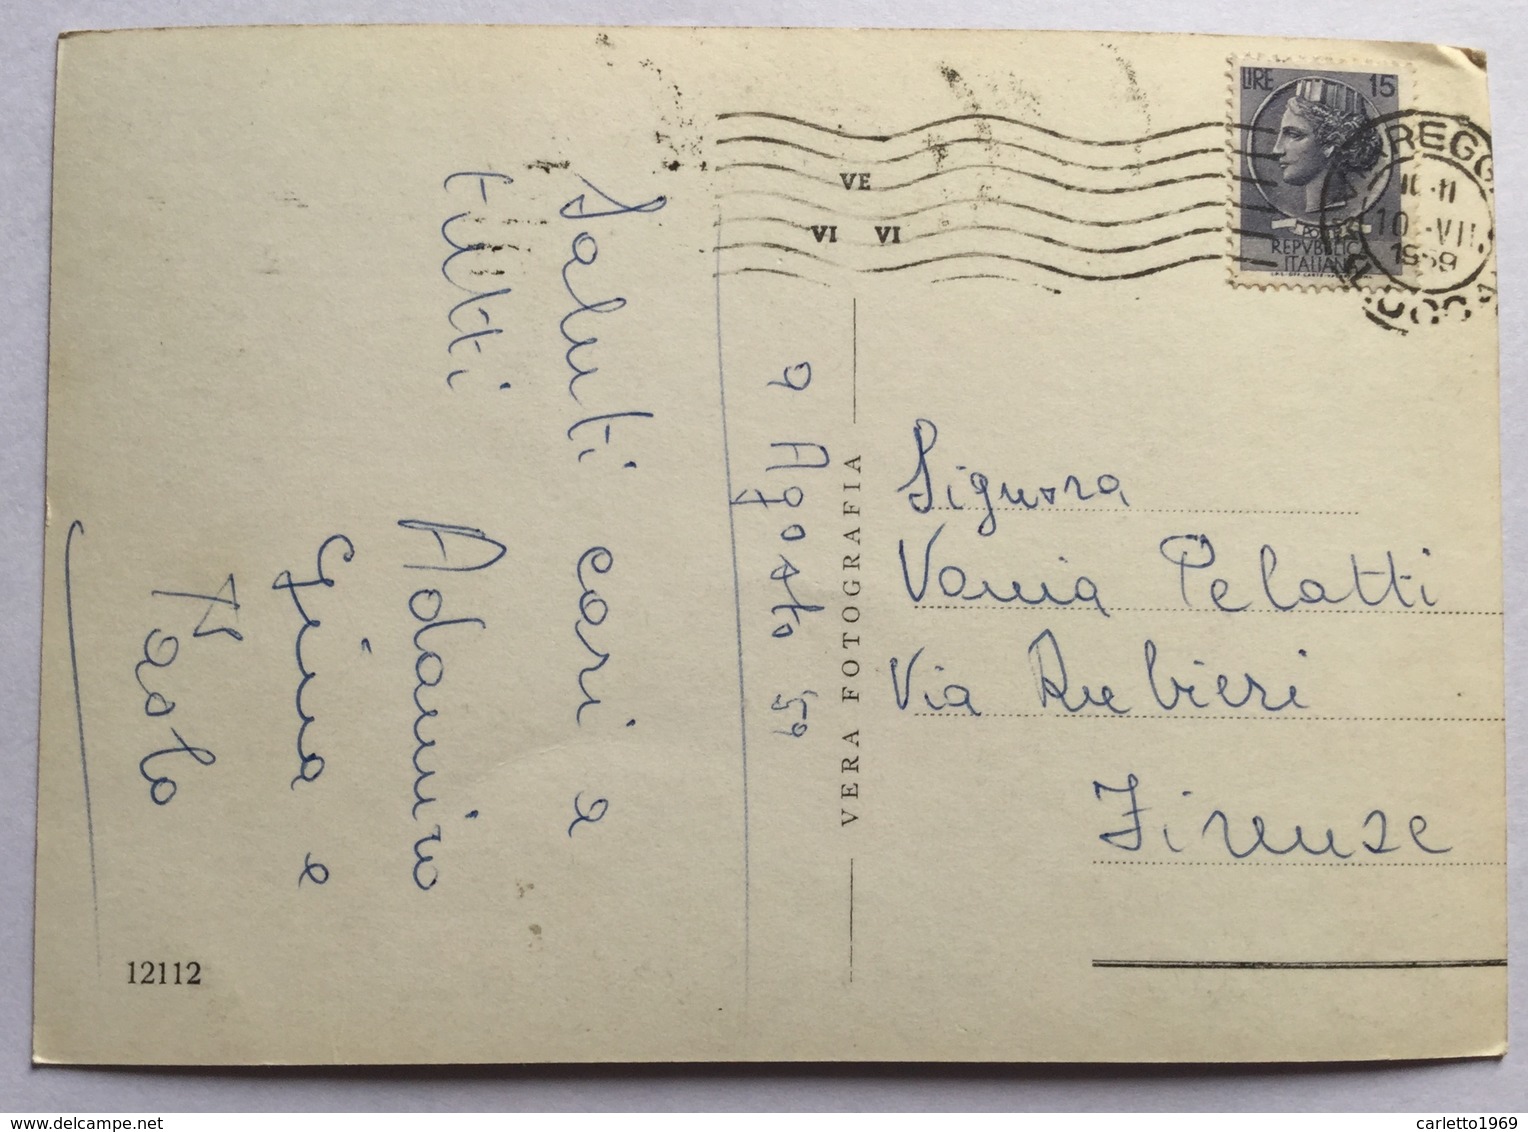 Saluti cari a
tutti
Adamiro
Gina e
Paolo
9 Agosto 59
VE
VI VI
VERA FOTOGRAFIA
LIRE 15
POSTE
REPVBBLICA
ITALIANA
10-11
10 -VII
1959
Signora
Vania Pelatti
Via Rubieri
Firenze
12112
carletto1969